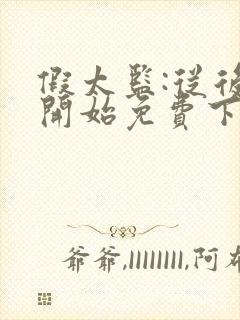 假太監:從後
開始免費下
爺爺,llllllll,阿布